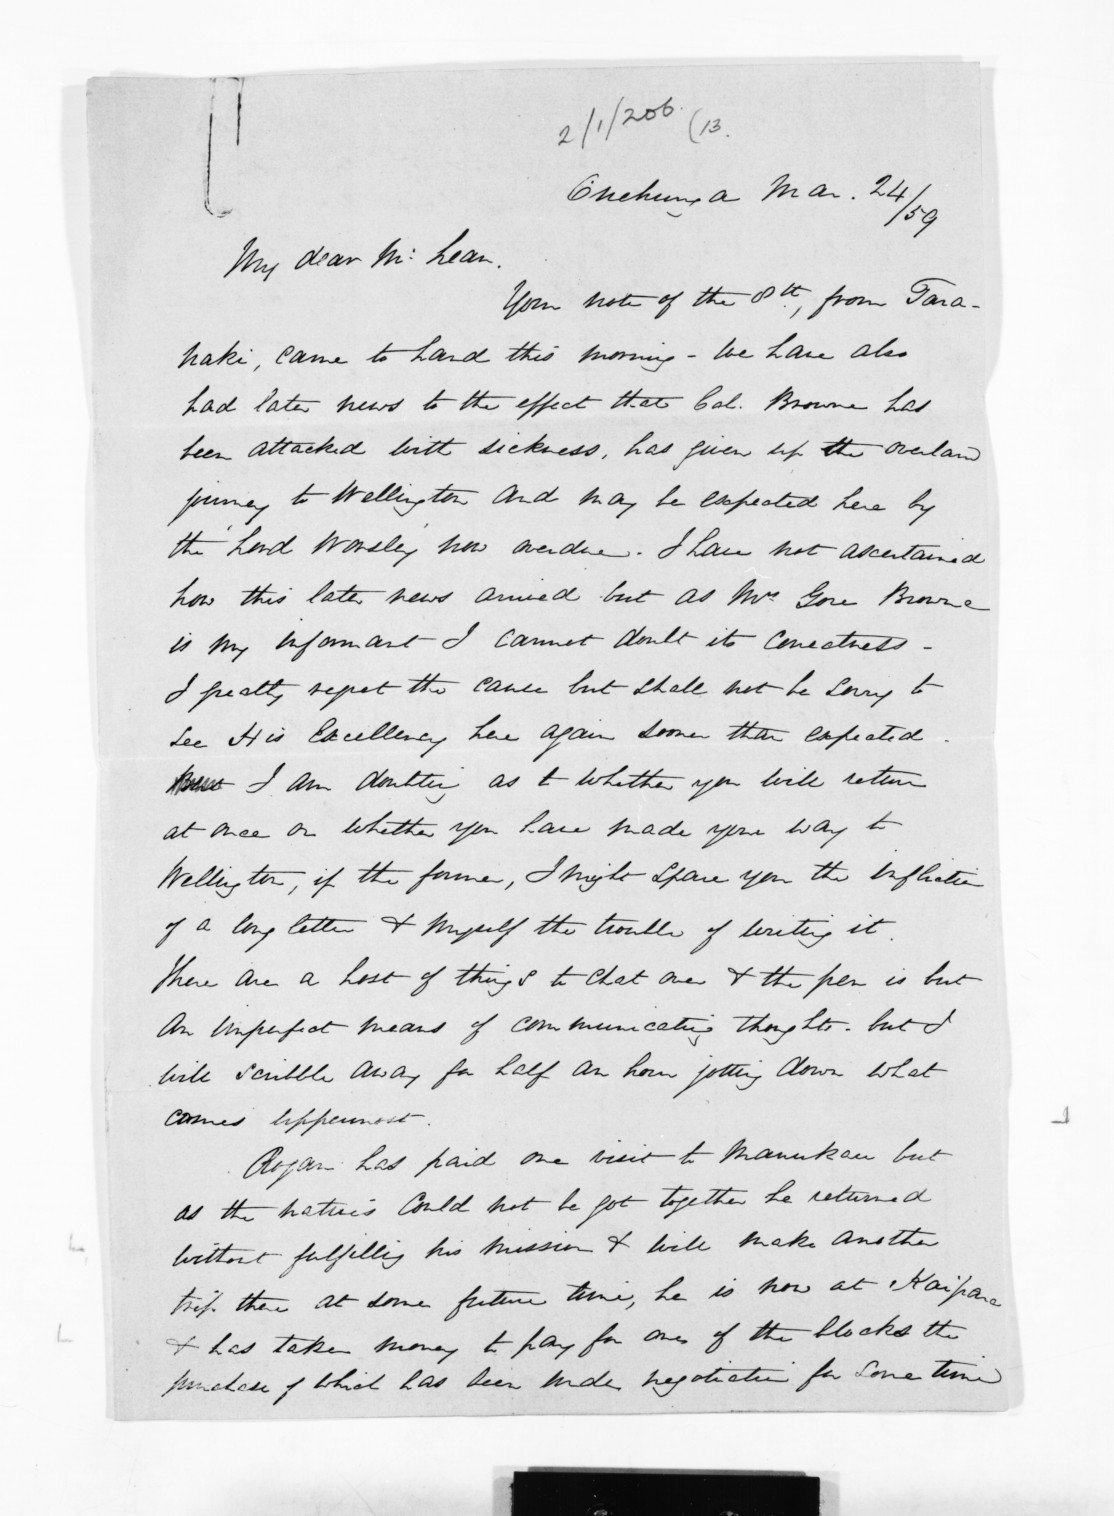 2/1/206 (13.
Onehunga Mar. 24/59
My dear Mc. Lean.
Your note of the 8th, from Tara-
naki, came to hand this morning - We have also
had later news to the effect that Col. Browne has
been attacked with sickness, has given up the overland
journey to Wellington and may be expected here by
the 'Lord Worsley' now overdue. I have not ascertained
how this later news arrived but as Mrs Gore Browne
is my informant I cannot doubt its correctness -
I greatly regret the cause but shall not be sorry to
see His Excellency here again sooner than expected.
I am doubting as to whether you will return
at once or whether you have made your way to
Wellington, if the former, I might spare you the infliction
of a long letter & myself the trouble of writing it.
There are a host of things to chat over & the pen is but
an imperfect means of communicating thoughts. but I
will scribble away for half an hour jotting down what
comes uppermost.
Rogan has paid one visit to Manukau but
as the natives could not be got together he returned
without fulfilling his mission & will make another
trip there at some future time, he is now at Kaipara
& has taken money to pay for one of the blocks the
purchase of which has been under negotiation for some time